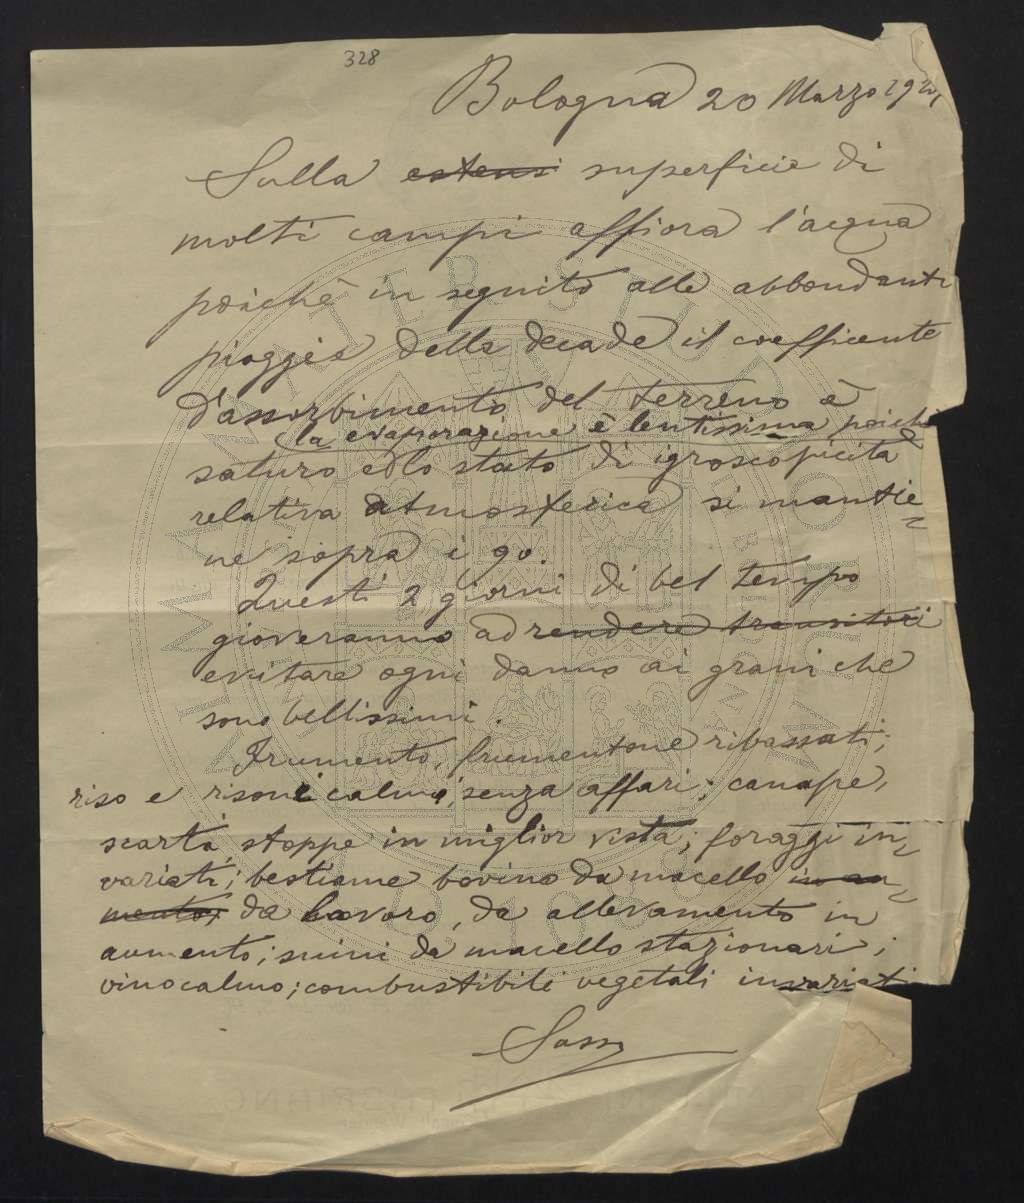 328
Bologna 20 Marzo
Sulla estensi superficie di
molti campi affiora l'acqua
poichè in seguito alle abbondanti
pioggie della decade il coefficente
d'assorbimento del terreno è
la evaporazione è lentissima poichè
saturo e lo stato di igroscopicità
relativa atmosferica si mantie=
ne sopra i 90.
Questi 2 giorni di bel tempo
gioveranno ad rendere transitori
evitare ogni danno ai grani che
sono bellissimi.
Frumento, frumentone ribassati;
riso e risoni calmi, senza affari; canape,
scarta, stoppe in miglior vista; foraggi in=
variati; bestiame bovino da macello in au=
mento, da lavoro, da allevamento in
aumento; suini da macello stazionari;
vino calmo; combustibili vegetali invariati
ALMA MATER STUDIORUM